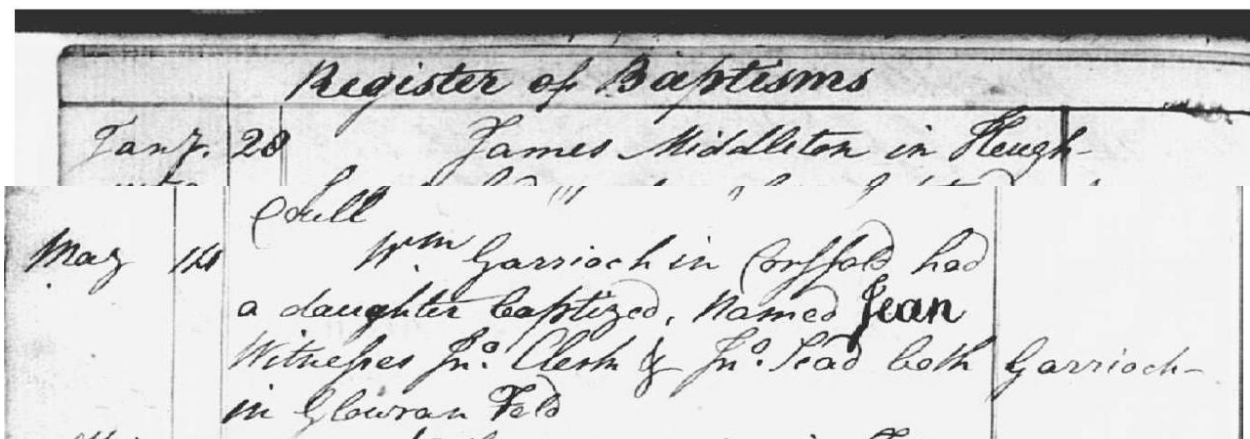 Register of Baptisms
Jany. 28 James Middleton in Heugh-
Coull
May 14 Wm Garrioch in Corsfald had
a daughter baptized, Named Jean
Witnesses Jno. Clerk & Jno. Read both Garrioch-
in Glowran Feld